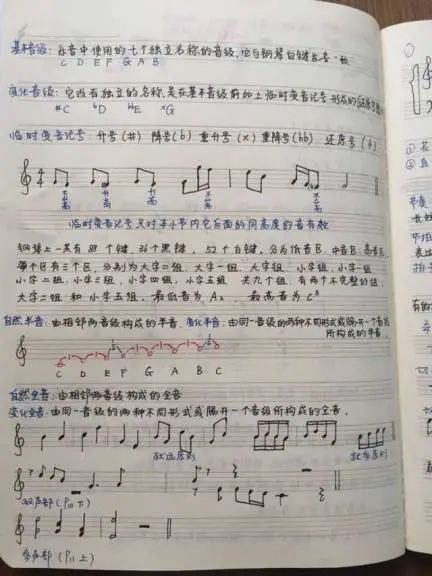 基本音级：乐音中使用的七个独立名称的音级，它与钢琴白键发音一致
C D E F G A B
变化音级：它没有独立的名称，是在基本音级前加上临时变音记号形成的
#C bD xG
临时变音记号：升号(#) 降号(b) 重升号(x) 重降号(bb) 还原号
升高 升高 升高 不高 不升高
临时变音记号只对本小节内它后面的同高度的音有效
钢琴上一共有 88 个键，36个黑键，52个白键，分为低音区、中音区、高音区，
每个区有三个区，分别为大字二组、大字一组、大字组、小字组、小字一组
小字二组、小字三组、小字四组、小字五组 共九个组，有两个不完整的组，
大字二组 和 小字五组，最低音为A2，最高音为C5
自然半音：由相邻两音级构成的半音，变化半音：由同一音级的两种不同形式或隔开一个音级
所构成的半音，
C D E F G A B C
自然全音：由相邻两音级构成的全音
变化全音：由同一音级的两种不同形式或隔开一个音级所构成的全音，
就远原则 就多原则
双声部（P10 下）
多声部（P11 上）